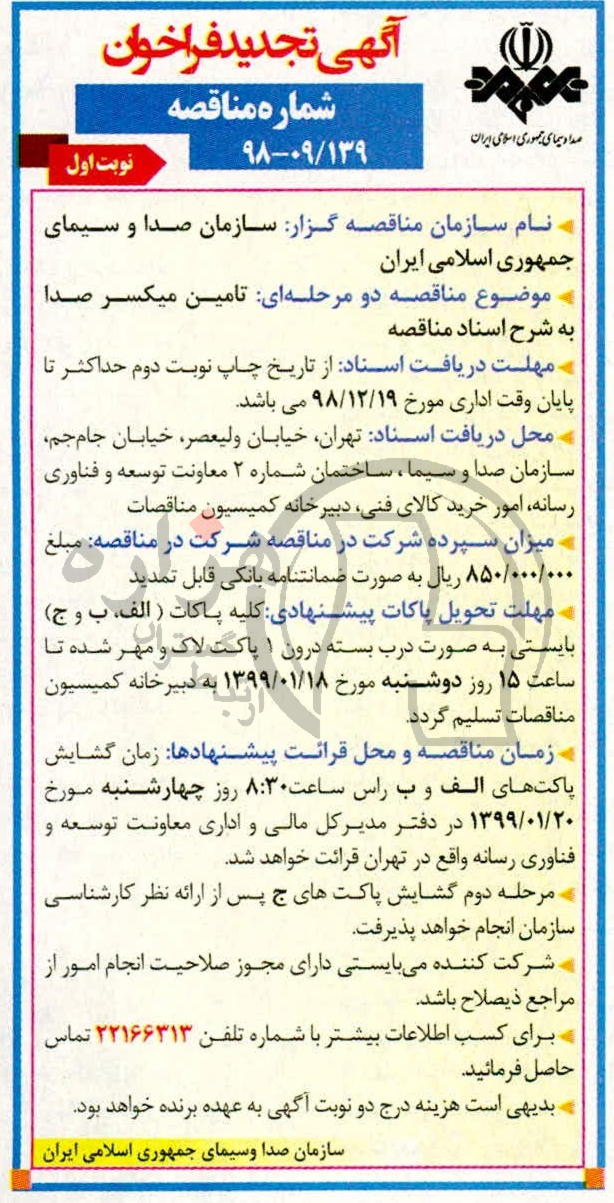 آگهی تجدید فراخوان
شماره مناقصه
۹۸-۰۹/۱۳۹
نوبت اول
صدا و سیمای جمهوری اسلامی ایران
نـام سـازمان مناقصـه گـزار: سـازمان صدا و سـیمای
جمهوری اسلامی ایران
موضـوع مناقصـه دو مرحلـه‌ای: تامیـن میکسـر صـدا
به شرح اسناد مناقصه
مهلـت دریافـت اسـناد: از تاریـخ چـاپ نوبـت دوم حداکثـر تا
پایان وقت اداری مورخ ۹۸/۱۲/۱۹ می باشد.
محل دریافت اسـناد: تهران، خیابـان ولیعصر، خیابـان جام‌جم،
سـازمان صدا و سـیما ، سـاختمان شـماره ۲ معاونت توسـعه و فناوری
رسانه، امور خرید کالای فنی، دبیرخانه کمیسیون مناقصات
میزان سـپرده شرکت در مناقصه شـرکت در مناقصه: مبلغ
۸۵۰/۰۰۰/۰۰۰ ریال به صورت ضمانتنامه بانکی قابل تمدید
مهلت تحویل پاکات پیشـنهادی: کلیه پـاکات ( الف، ب و ج)
بایسـتی بـه صـورت درب بسـته درون ۱ پاکـت لاک و مهـر شـده تـا
ساعت ۱۵ روز دوشـنبه مورخ ۱۳۹۹/۰۱/۱۸ به دبیرخانه کمیسیون
مناقصات تسلیم گردد.
زمـان مناقصـه و محل قرائـت پیشـنهادها: زمان گشـایش
پاکت‌هـای الـف و ب راس سـاعت۸:۳۰ روز چهارشـنبه مـورخ
۱۳۹۹/۰۱/۲۰ در دفتـر مدیـرکل مالـی و اداری معاونـت توسـعه و
فناوری رسانه واقع در تهران قرائت خواهد شد.
مرحلـه دوم گشـایش پاکـت های ج پـس از ارائه نظر کارشناسـی
سازمان انجام خواهد پذیرفت.
شـرکت کننـده می‌بایسـتی دارای مجـوز صلاحیـت انجام امـور از
مراجع ذیصلاح باشد.
بـرای کسـب اطلاعات بیشـتر با شـماره تلفـن ۲۲۱۶۶۳۱۳ تماس
حاصل فرمائید.
بدیهی است هزینه درج دو نوبت آگهی به عهده برنده خواهد بود.
سازمان صدا وسیمای جمهوری اسلامی ایران
هزاره